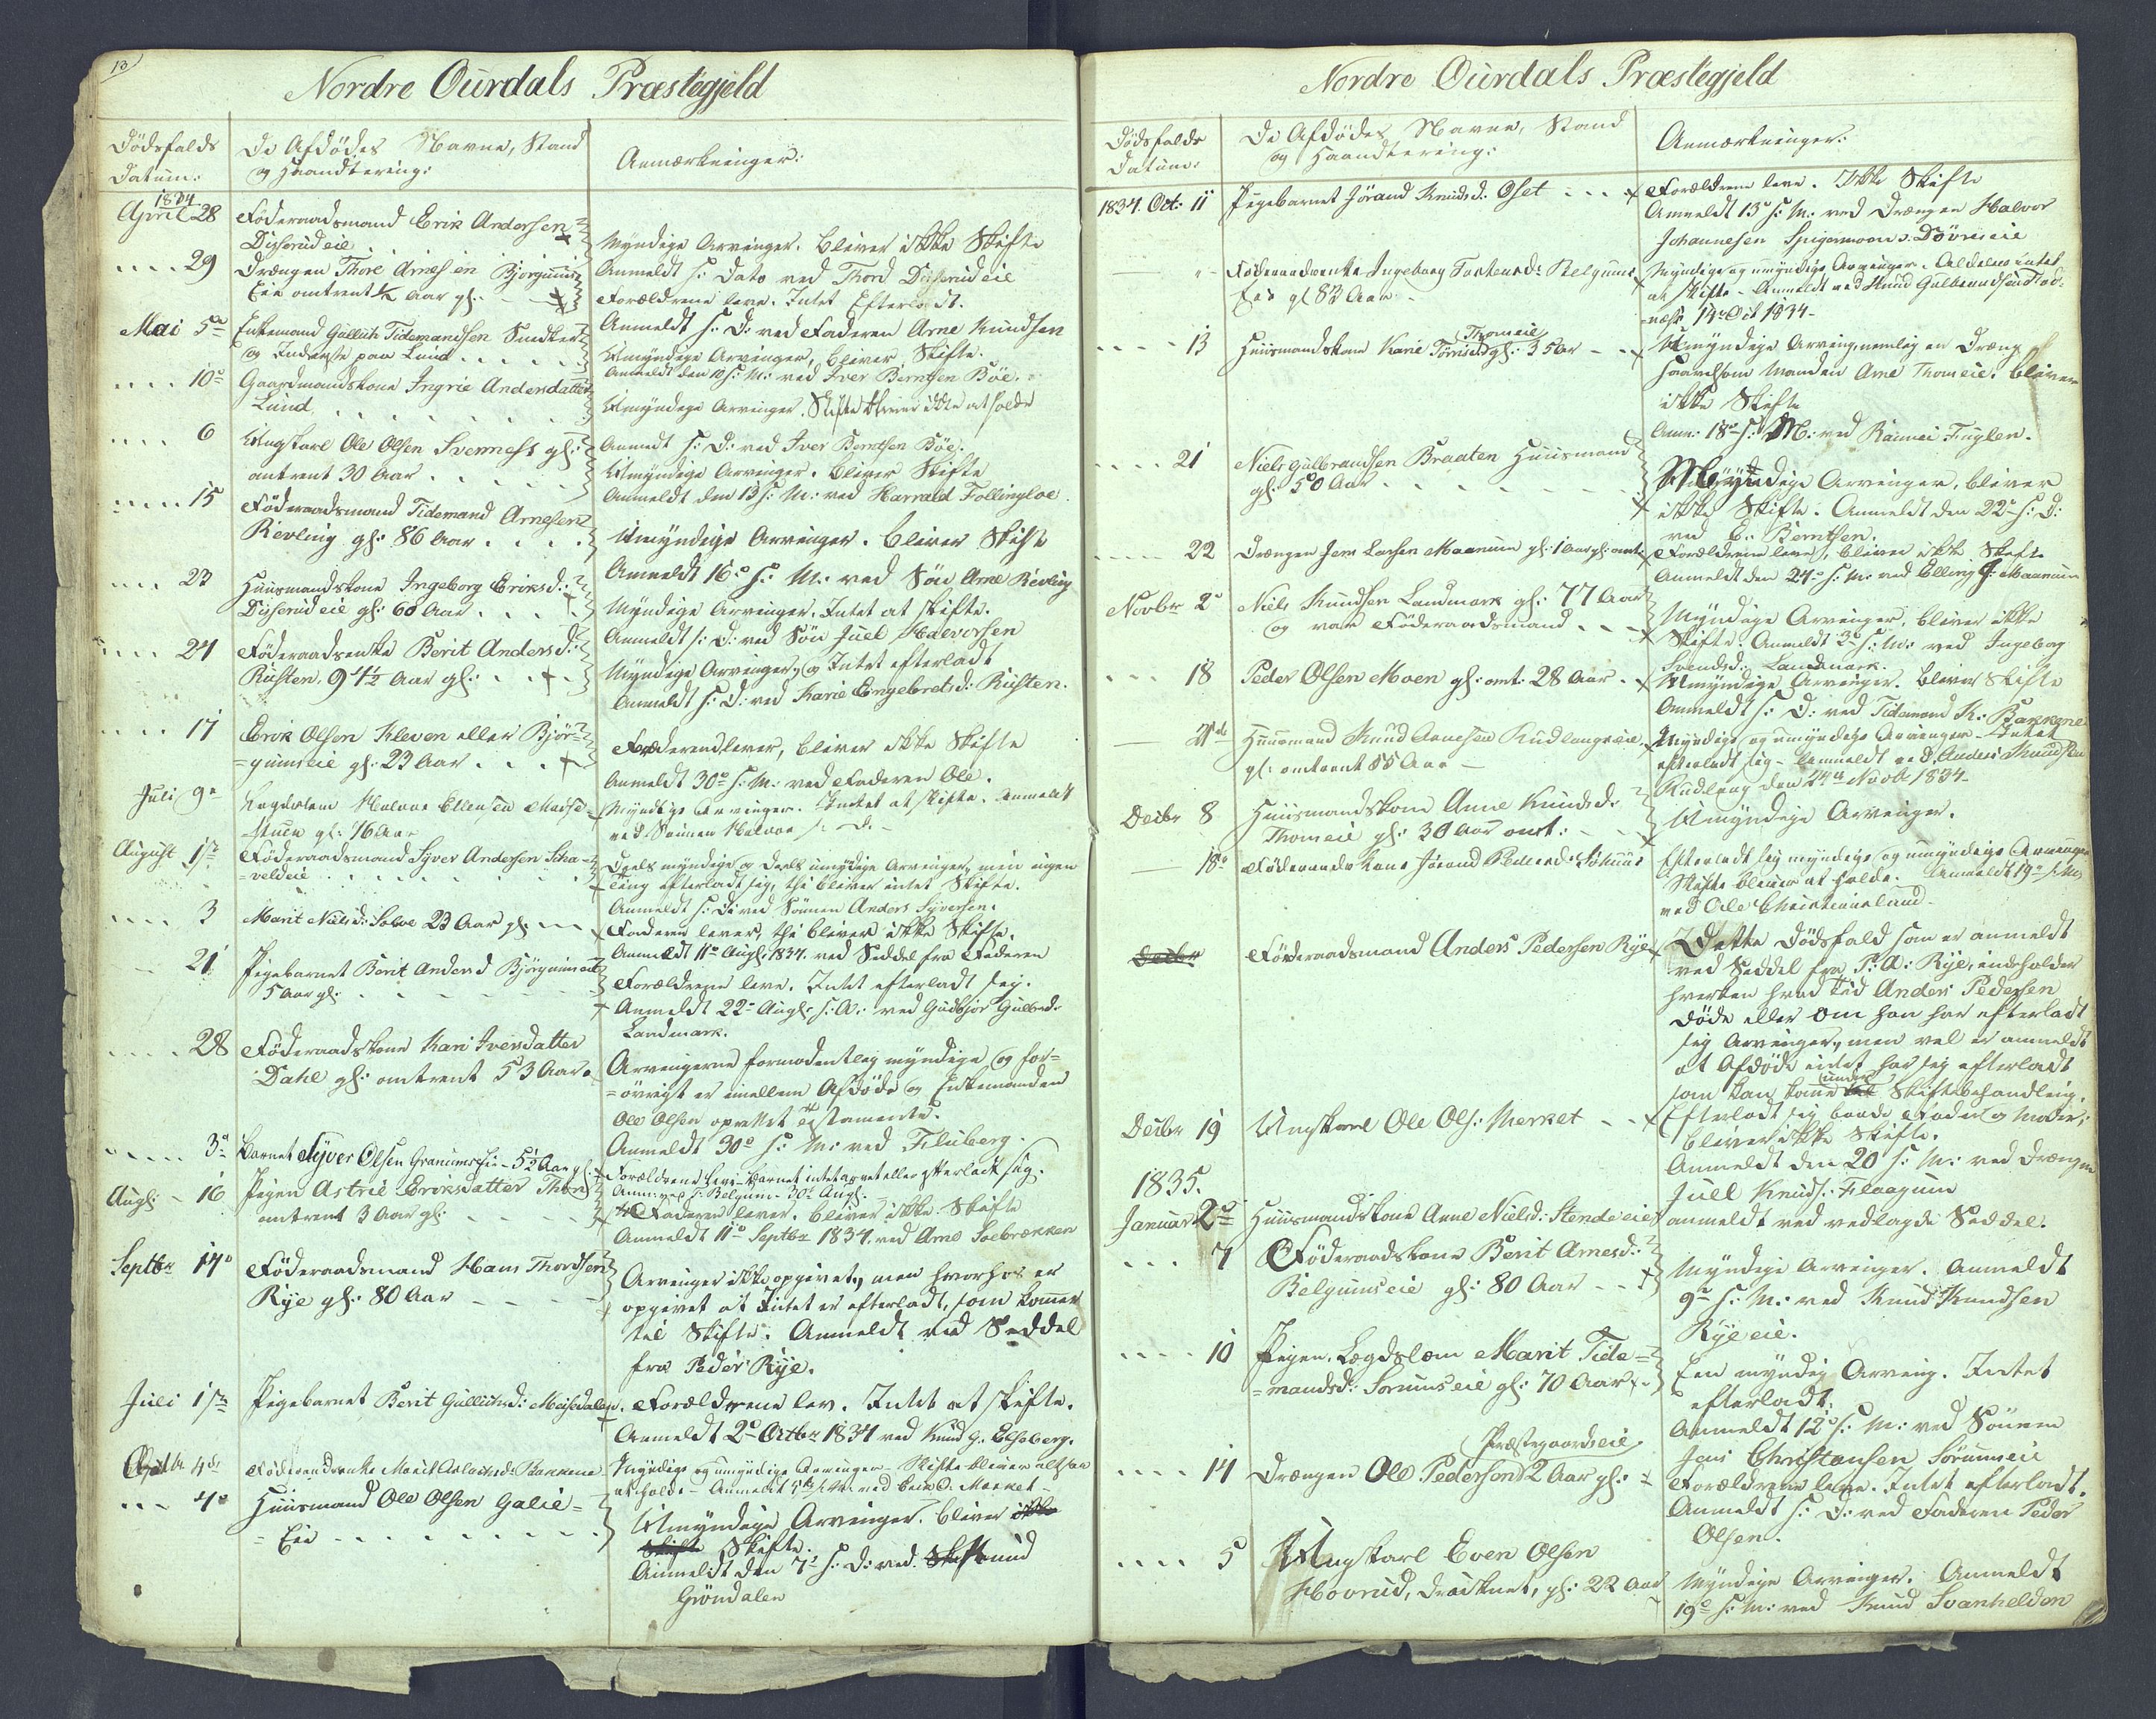 13
Nordre Ourdals Præstegjeld
Dödsfalds
Datum:
De Afdödes Navne, Stand
og Haandtering:
Anmærkninger:
1834
April 28
Föderaadsmand Erik Andersen
Disserud eie
Myndige Arvinger. bliver ikke Skifte
Anmeldt s: Dato ved Thord Disserud eie
29
Drængen Thore Arnesen Bjørgums
Eie omtrent 1/2 Aar gl:
Forældrene leve. Intet Efterladt.
Anmeldt s: D: ved Faderen Arne Knudsen
Mai 5te
Enkemand Gullich Tidemandsen Snedker
og Inderste paa Lund
Umyndige Arvinger, bliver Skifte.
Anmeldt den 10 s: M: ved Iver Berntsen Böe.
10de
Gaardmandskone Ingrie Andersdatter
Lund
Umyndige Arvinger. Skifte bliver ikke at holde
Anmeldt s: D: ved Iver Berntsen Böe.
6
Ungkarl Ole Olsen Svenness gl:
omtrent 30 Aar
Umyndige Arvinger. bliver Skifte
Anmeldt den 13 s: M: ved Harrald Follingloe.
15
Föderaadsmand Tidemand Arnesen
Rievling gl: 86 Aar
Umyndige Arvinger. bliver Skifte
Anmeldt 16de s: M: ved Sön Arne Rievling
23
Huusmandskone Ingeborg Eriksd:
Disserud eie gl: 60 Aar
Myndige Arvinger. Intet at skifte.
Anmeldt s: D: ved Sön Juel Halvorsen
24
Föderaadsenke Berit Andersd:
Rusten, 94 1/2 Aar gl:
Myndige Arvinger, og Intet efterladt
Anmeldt s: D: ved Karie Engebretsd: Rusten.
17
Erik Olsen Kleven eller Bjør=
=gumseie gl: 23 Aar
Faderen lever, bliver ikke Skifte
Anmeldt 30de s: M: ved Faderen Ole.
Juli 9de
Lægdslem Halvor Ellensen
stuen gl: 76 Aar
Myndige Arvinger. Intet at skifte. Anmeldt
ved Sönnen Halvor s: D:
August 1ste
Föderaadsmand Syver Andersen Ska=
=veldeie
Deels myndige og deels umyndige Arvinger, men ingen
Ting efterladt sig, thi bliver intet Skifte.
Anmeldt s: D: ved Sönnen Anders Syversen.
3
Marit Nielsd: Soloe 23 Aar gl:
Faderen lever, thi bliver ikke Skifte.
Anmeldt 11te Augs: 1834. ved Seddel fra Faderen
21
Pigebarnet Berit Andersd Bjørgumseie
5 Aar gl:
Forældrene leve. Intet efterladt sig.
Anmeldt 22de Augs: s: A: ved Gudbjør Gulbrd:
Landmark.
28
Föderaadskone Kari Iversdatter
Dahl gl: omtrent 53 Aar
Arvingerne formodentlig myndige og for=
=övrigt er imellem Afdöde og Enkemanden
Ole Olsen oprettet Testamente.
Anmeldt 30de s: M: ved Fluberg.
3de
Barnet Syver Olsen Granumseie 5 1/2 Aar gl:
Forældrene leve. Barnet intet arvet eller efterladt sig.
Anm: ved s: Belgum 30te Augs.
Augs: 16
Pigen Astrie Eriksdatter Thon
omtrent 3 Aar gl:
Faderen lever. bliver ikke Skifte
Anmeldt 11te Septbr 1834. ved Arne Soebrækken
Septbr 14de
Föderaadsmand Hans Thordsen
Rye gl: 80 Aar
Arvinger ikke opgivet, men hvorhos er
opgivet at Intet er efterladt, som kommer
til Skifte. Anmeldt ved Seddel
fra Peder Rye.
Juli 1ste
Pigebarnet Berit Gullichsd: Meisdalen
Forældrene lev. Intet at skifte.
Anmeldt 2de Octbr 1834 ved Knud G. Elsberg.
4de
Föderaadsenke Marit Aslachsd: Bakkene
Myndige og umyndige Arvinger. Skifte bliver altsaa
at holde - Anmeldt
4de
Huusmand Ole Olsen Galie=
=Eie
Umyndige Arvinger. bliver ikke
Skifte Skifte.
Anmeldt den 7de s: D: ved Knud
Gröndalen
Nordre Ourdals Præstegjeld
Dödsfalds
Datum:
De Afdödes Navne, Stand
og Haandtering:
Anmærkninger:
1834. Oct: 11
Pigebarnet Jörand Knudsd: Oset
Forældrene leve. Ikke Skifte
Anmeldt 13de s: M: ved Drængen Halvor
Johannesen Spigermoen
Föderaadsenke Ingeborg Torstensd: Belgums
Eie gl 83 Aar
Myndige og umyndige Arvinger. Aldeles intet
at skifte - Anmeldt ved Knud Gulbrandsen
14de Oct 1834
13
Huusmandskone Karie Tömesd: Thomeie gl: 35 Aar
Umyndige Arving, nemlig en Dræng
saavelsom Manden Arne Thomeie. bliver
ikke Skifte
Anm: 18de s: M: ved Fuglen.
21
Niels Gulbrandsen Braaten Huusmand
gl: 50 Aar
Myndige Arvinger, bliver
ikke Skifte. Anmeldt den 22de s: D:
ved E. Berntsen.
22
Drængen Jens Larsen Maanum gl: 1 Aar gl: omt:
Forældrene leve, bliver ikke Skifte
Anmeldt den 24de s: M: ved Elling J: Maanum
Novbr 2de
Niels Knudsen Landmark gl: 77 Aar
og var Föderaadsmand
Myndige Arvinger, bliver ikke
Skifte. Anmeldt 3de s: M: ved Ingeborg
Svendsd: Landmark.
18
Peder Olsen Moen gl: omt: 28 Aar
Umyndige Arvinger. bliver Skifte
Anmeldt s: D: ved Tidemand K: Bakkene
21de
Huusmand Knud Arnesen Rudlangseie
gl: omtrent 55 Aar
Myndige og umyndige Arvinger - Intet
efterladt sig - Anmeldt ved Anders Knudsen
Rudlang den 24de Novb 1834
Decbr 8
Huusmandskone Anne Knudsd:
Thomeie gl: 30 Aar omt:
Umyndige Arvinger.
18de
Föderaads Kone Jörand Pedersd:
Efterladt sig myndige og umyndige Arvinger
Skifte bliver at holde. Anmeldt 19de s: M:
ved Ole Christiansland
Decbr
Föderaadsmand Anders Pedersen Rye
Dette Dödsfald som er anmeldt
ved Seddel fra P: A: Rye, indeholder
hverken hvad Tid Anders Pedersen
döde eller om han har efterladt
sig Arvinger, men vel er anmeldt
at Afdöde intet har sig efterladt
som kan komme under Skiftebehandling.
Decbr 19
Ungkarl Ole Ols: Merket
Efterladt sig baade Fader og Moder,
bliver ikke Skifte.
Anmeldt den 20 s: M: ved Drængen
Juel Knuds: Flaagum
1835.
Januar 2de
Huusmandskone Anne Nielsd: Stende eie
anmeldt ved vedlagde Seddel.
7
Föderaadskone Berit Arnesd:
Belgumseie gl: 80 Aar
Myndige Arvinger. Anmeldt
9de s: M: ved Knud Knudsen
Rye eie.
10
Pigen, Lægdslem Marit Tide=
=mandsd: Sorumseie gl: 70 Aar
Een myndig Arving. Intet
efterladt.
Anmeldt 12de s: M: ved Sönnen
Jens Christansen Sörumseie
14
Præstegaardseie
Drængen Ole Pedersen 2 Aar gl:
Forældrene leve. Intet efterladt.
Anmeldt s: D: ved Faderen Peder
Olsen.
5
Ungkarl Even Olsen
Hovrud, druknet, gl: 22 Aar
Myndige Arvinger. Anmeldt
19de s: M: ved Knud Svanhelden